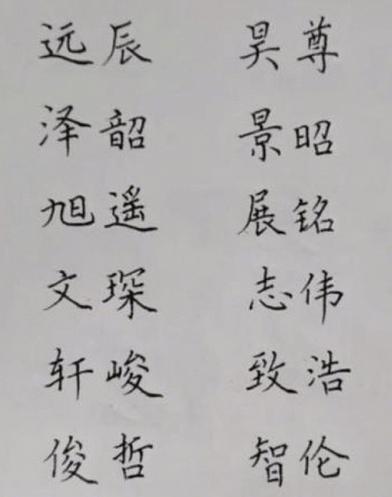 远辰 昊尊
泽韶 景昭
旭遥 展铭
文琛 志伟
轩峻 致浩
俊哲 智伦